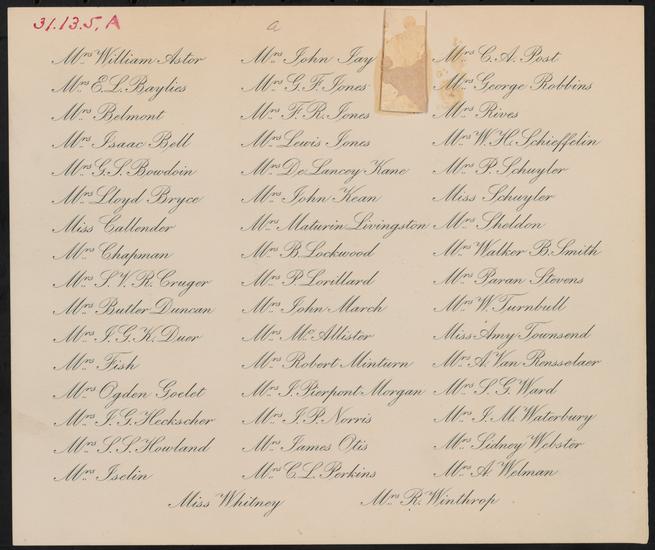 31.13.5, A
a
Mrs William Astor
Mrs E. L. Baylies
Mrs Belmont
Mrs Isaac Bell
Mrs G. S. Bowdoin
Mrs Lloyd Bryce
Miss Callender
Mrs Chapman
Mrs S. V. R. Cruger
Mrs Butler Duncan
Mrs J. G. K. Duer
Mrs Fish
Mrs Ogden Goelet
Mrs J. G. Heckscher
Mrs S. S. Howland
Mrs Iselin
Mrs John Jay
Mrs G. F. Jones
Mrs F. R. Jones
Mrs Lewis Jones
Mrs De Lancey Kane
Mrs John Kean
Mrs Maturin Livingston
Mrs B. Lockwood
Mrs P. Lorillard
Mrs John March
Mrs Mc Allister
Mrs Robert Minturn
Mrs J. Pierpont Morgan
Mrs J. P. Norris
Mrs James Otis
Mrs C. L. Perkins
Mrs C. A. Post
Mrs George Robbins
Mrs Rives
Mrs W. H. Schieffelin
Mrs P. Schuyler
Miss Schuyler
Mrs Sheldon
Mrs Walker B. Smith
Mrs Paran Stevens
Mrs W. Turnbull
Miss Amy Townsend
Mrs A. Van Rensselaer
Mrs S. G. Ward
Mrs J. M. Waterbury
Mrs Sidney Webster
Mrs A. Welman
Miss Whitney
Mrs R. Winthrop